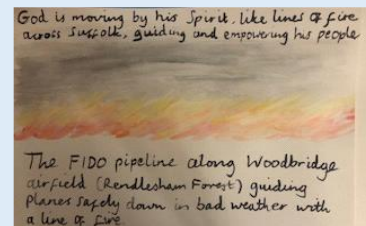 God is moving by his Spirit, like lines of fire
across Suffolk, guiding and empowering his people
The FIDO pipeline along Woodbridge
airfield (Rendlesham Forest) guiding
planes safely down in bad weather with
a line of fire